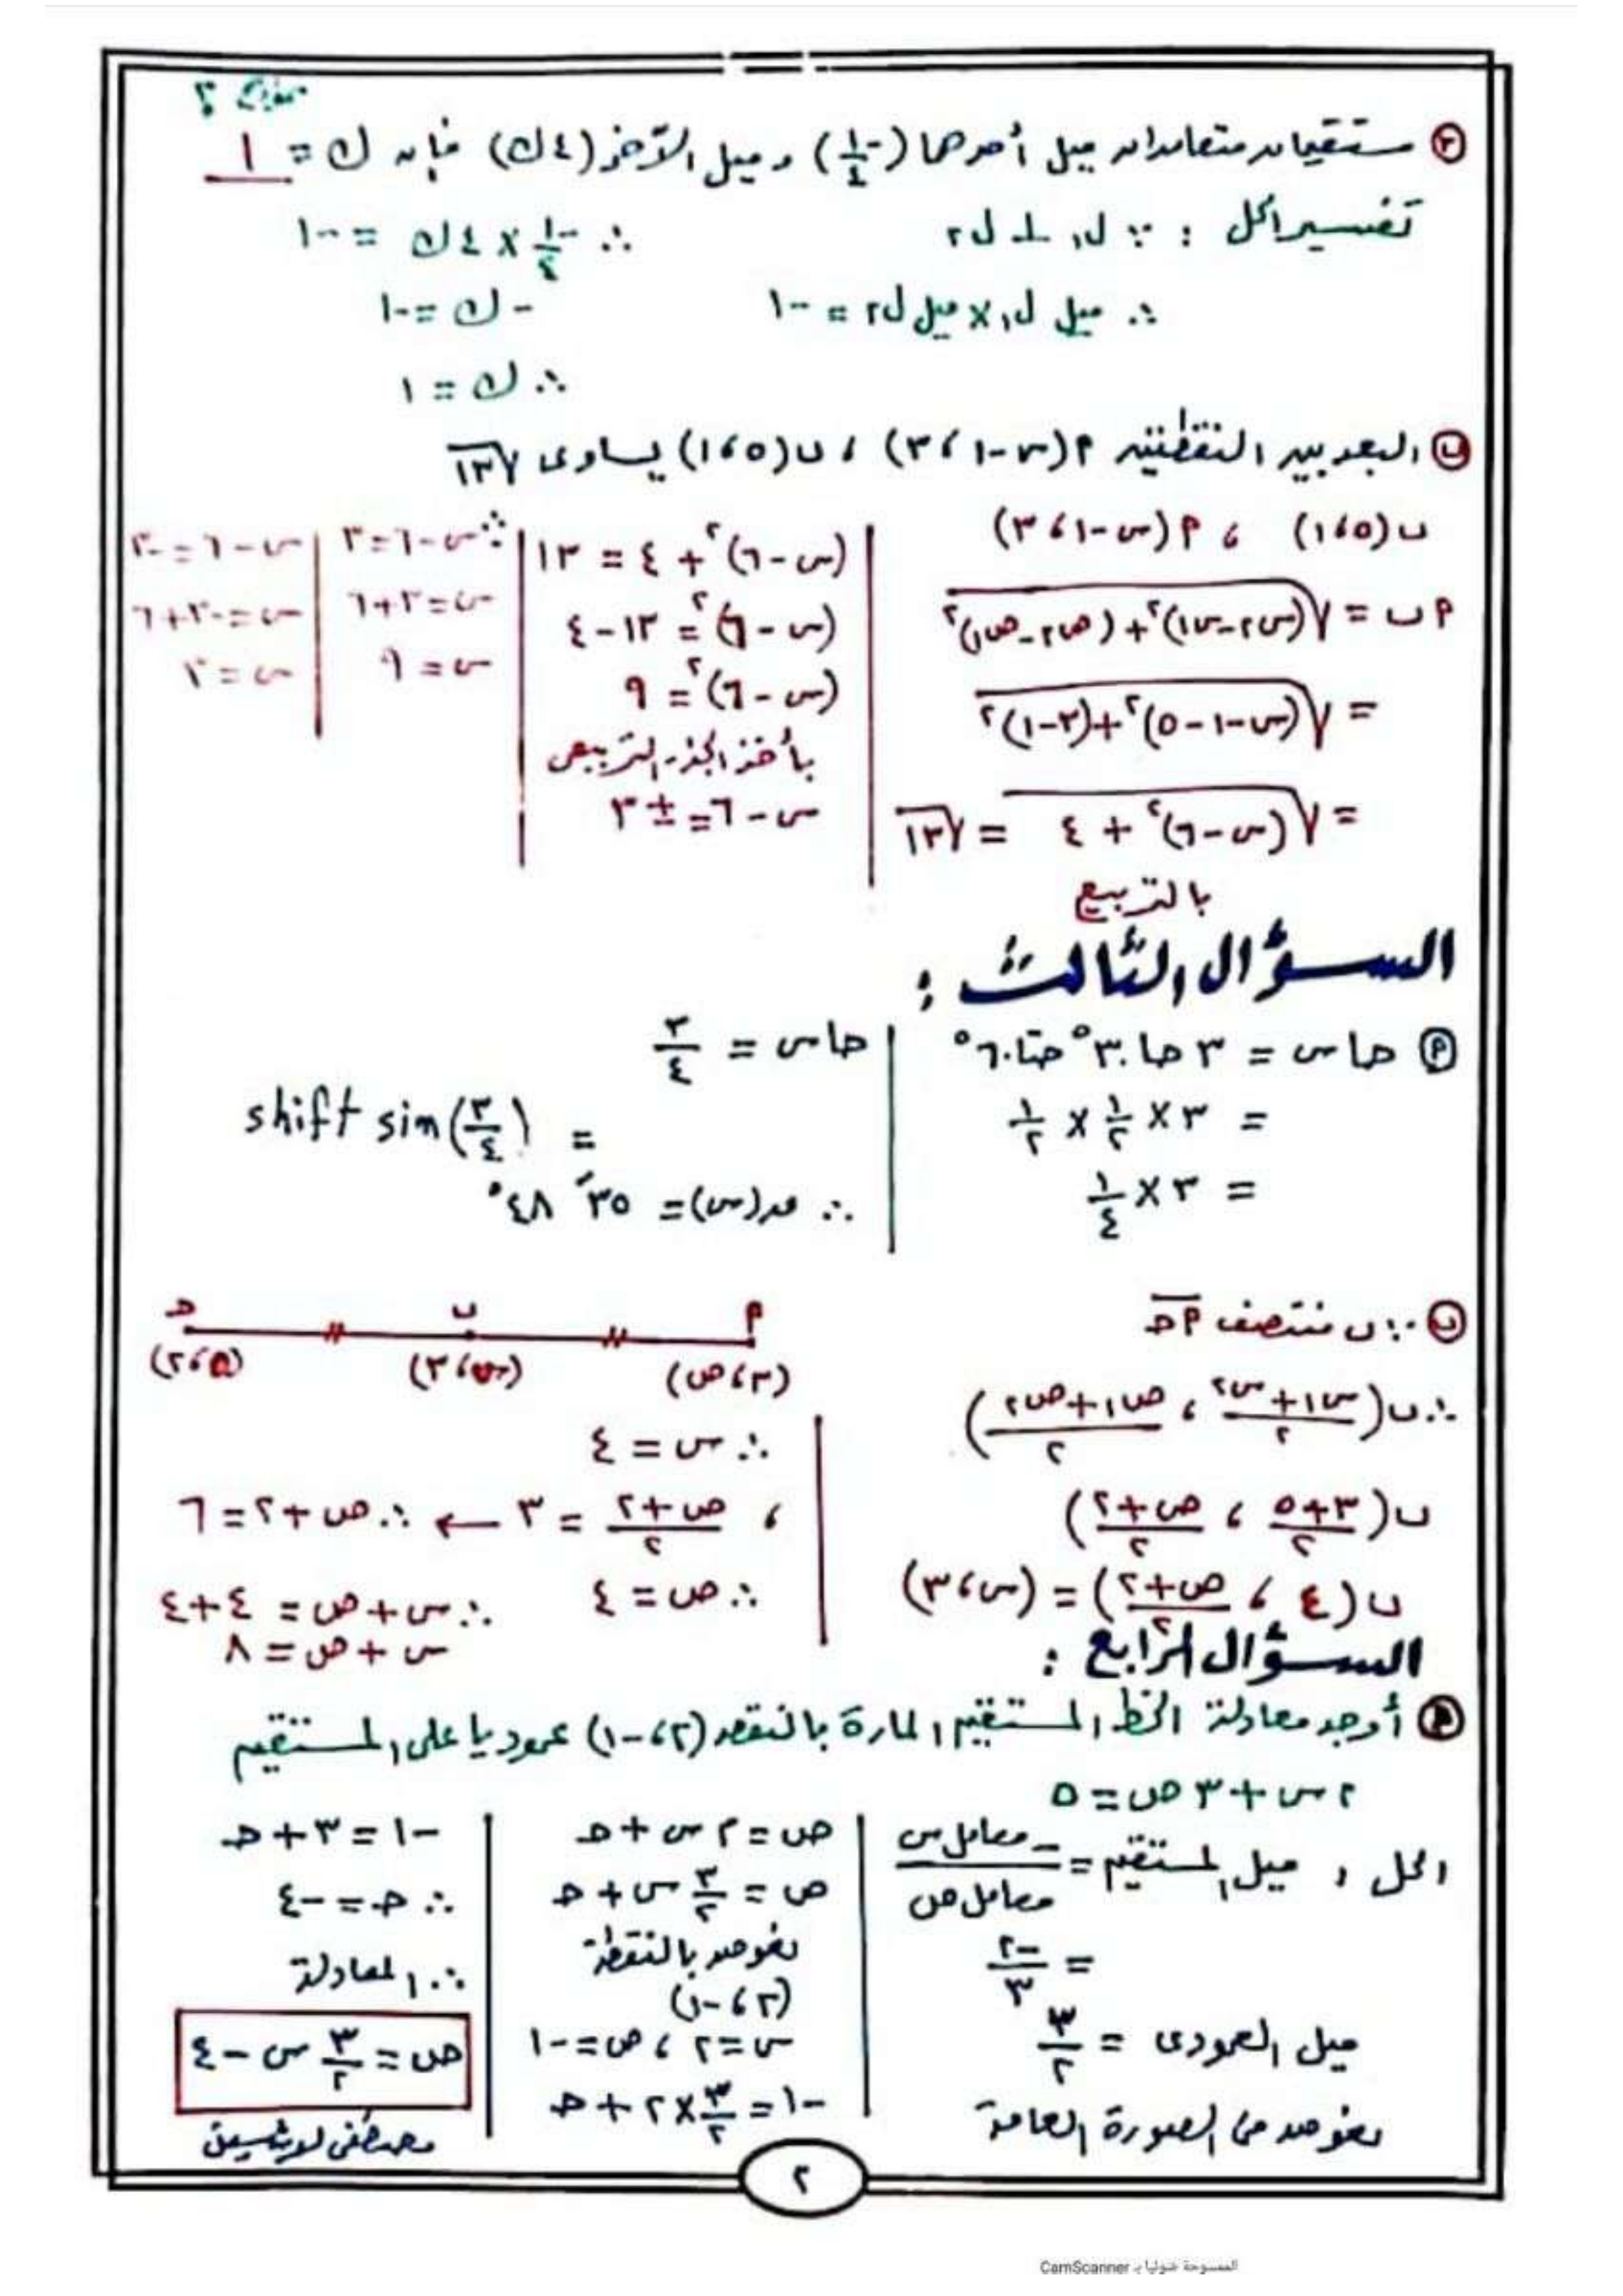 ٣ مستقيمان متعامدان ميل أحدهما (-١/٤) وميل الآخر (٤ك) فإن ك = ١
تفسير الحل : ∵ ل١ ⊥ ل٢
∴ ميل ل١ × ميل ل٢ = -١
∴ -١/٤ × ٤ك = -١
-ك = -١
∴ ك = ١
ب البعد بين النقطتين م(س-١ ، ٣) ، ب(٥ ، ١) يساوى √١٣
ب(٥ ، ١) ، م(س-١ ، ٣)
م ب = √((س٢-س١)² + (ص٢-ص١)²)
= √((س-١-٥)² + (٣-١)²)
= √((س-٦)² + ٤) = √١٣
بالتربيع
(س-٦)² + ٤ = ١٣
(س-٦)² = ١٣-٤
(س-٦)² = ٩
بأخذ الجذر التربيعى
س-٦ = ± ٣
∴ س-٦ = ٣
س = ٣+٦
س = ٩
س-٦ = -٣
س = -٣+٦
س = ٣
السؤال الثالث :
م حاس = ٣ حا ٣٠° حتا ٦٠°
= ٣ × ١/٢ × ١/٢
= ٣ × ١/٤
حاس = ٣/٤
= shift sin(٣/٤)
∴ ق(س) = ٣٥′ ٤٨°
ب ∵ ب منتصف م ح
م ب ح
(٣ ، ص) (س ، ٣) (٥ ، ٢)
∴ ب((س١+س٢)/٢ ، (ص١+ص٢)/٢)
ب((٣+٥)/٢ ، (ص+٢)/٢)
ب(٤ ، (ص+٢)/٢) = (س ، ٣)
∴ س = ٤
، (ص+٢)/٢ = ٣ ← ∴ ص+٢ = ٦
∴ ص = ٤
∴ س+ص = ٤+٤
س + ص = ٨
السؤال الرابع :
م أوجد معادلة الخط المستقيم المارة بالنقطة (٢ ، -١) عموديا على المستقيم
٢س + ٣ص = ٥
الحل ، ميل المستقيم = -معامل س/معامل ص
= -٢/٣
ميل العمودى = ٣/٢
نعوض فى الصورة العامة
ص = م س + ح
ص = ٣/٢ س + ح
نعوض بالنقطة
(٢ ، -١)
س = ٢ ، ص = -١
-١ = ٣/٢ × ٢ + ح
-١ = ٣ + ح
∴ ح = -٤
∴ المعادلة
ص = ٣/٢ س - ٤
٢
الممسوحة ضوئيا بـ CamScanner